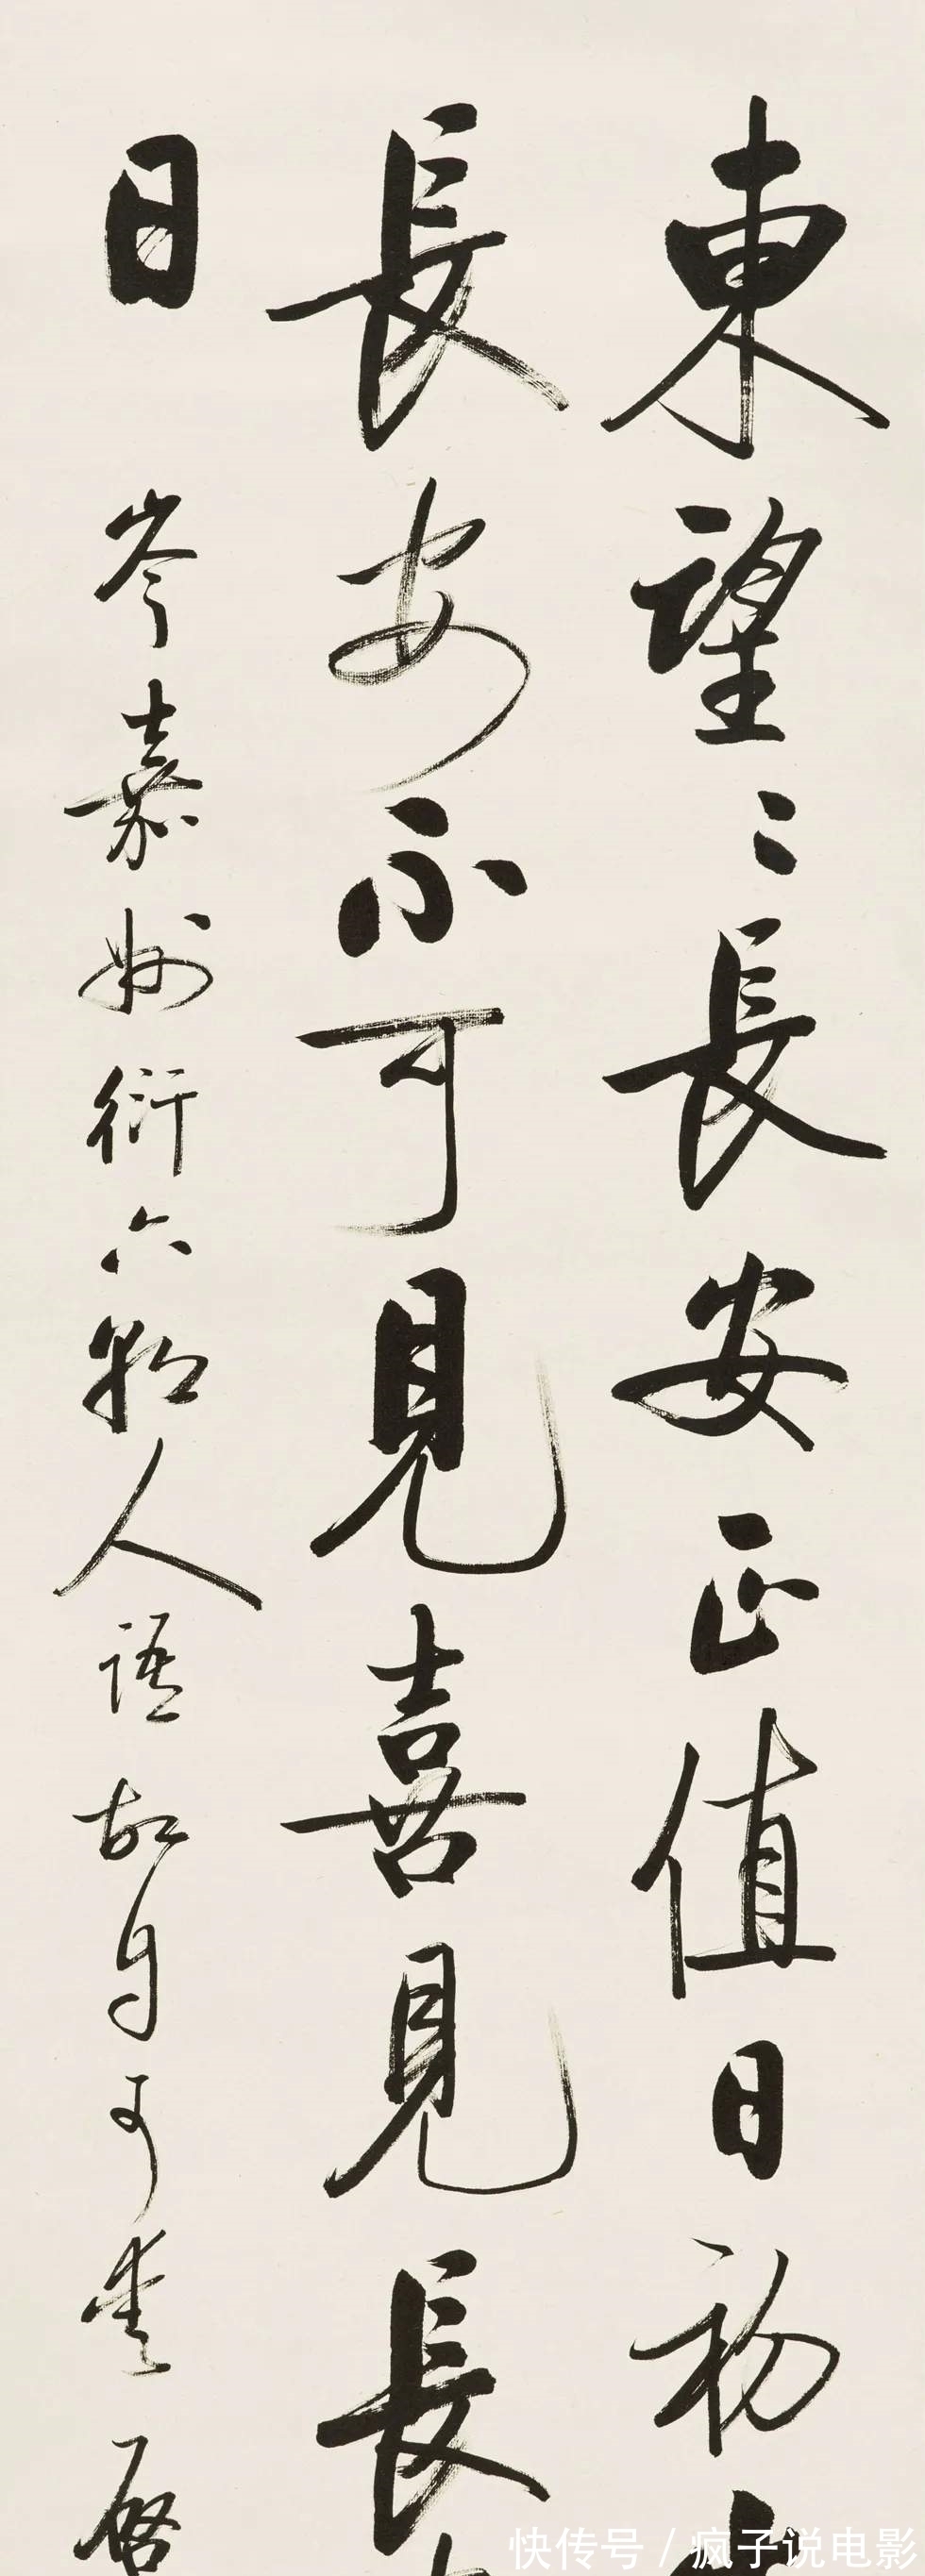 東望〻長安正值日初
長安不可見喜見長
日
岑嘉州衍六朝人語故自可愛 啓
快传号 / 疯子说电影